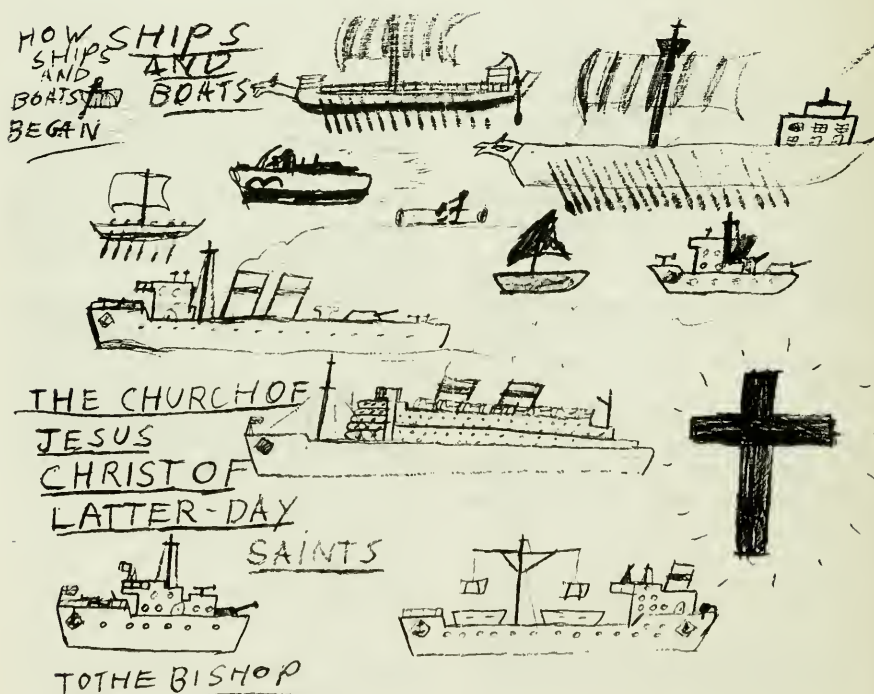 HOW
SHIPS
AND
BOATS
BEGAN
SHIPS
AND
BOATS
THE CHURCH OF
JESUS
CHRIST OF
LATTER-DAY
SAINTS
TO THE BISHOP